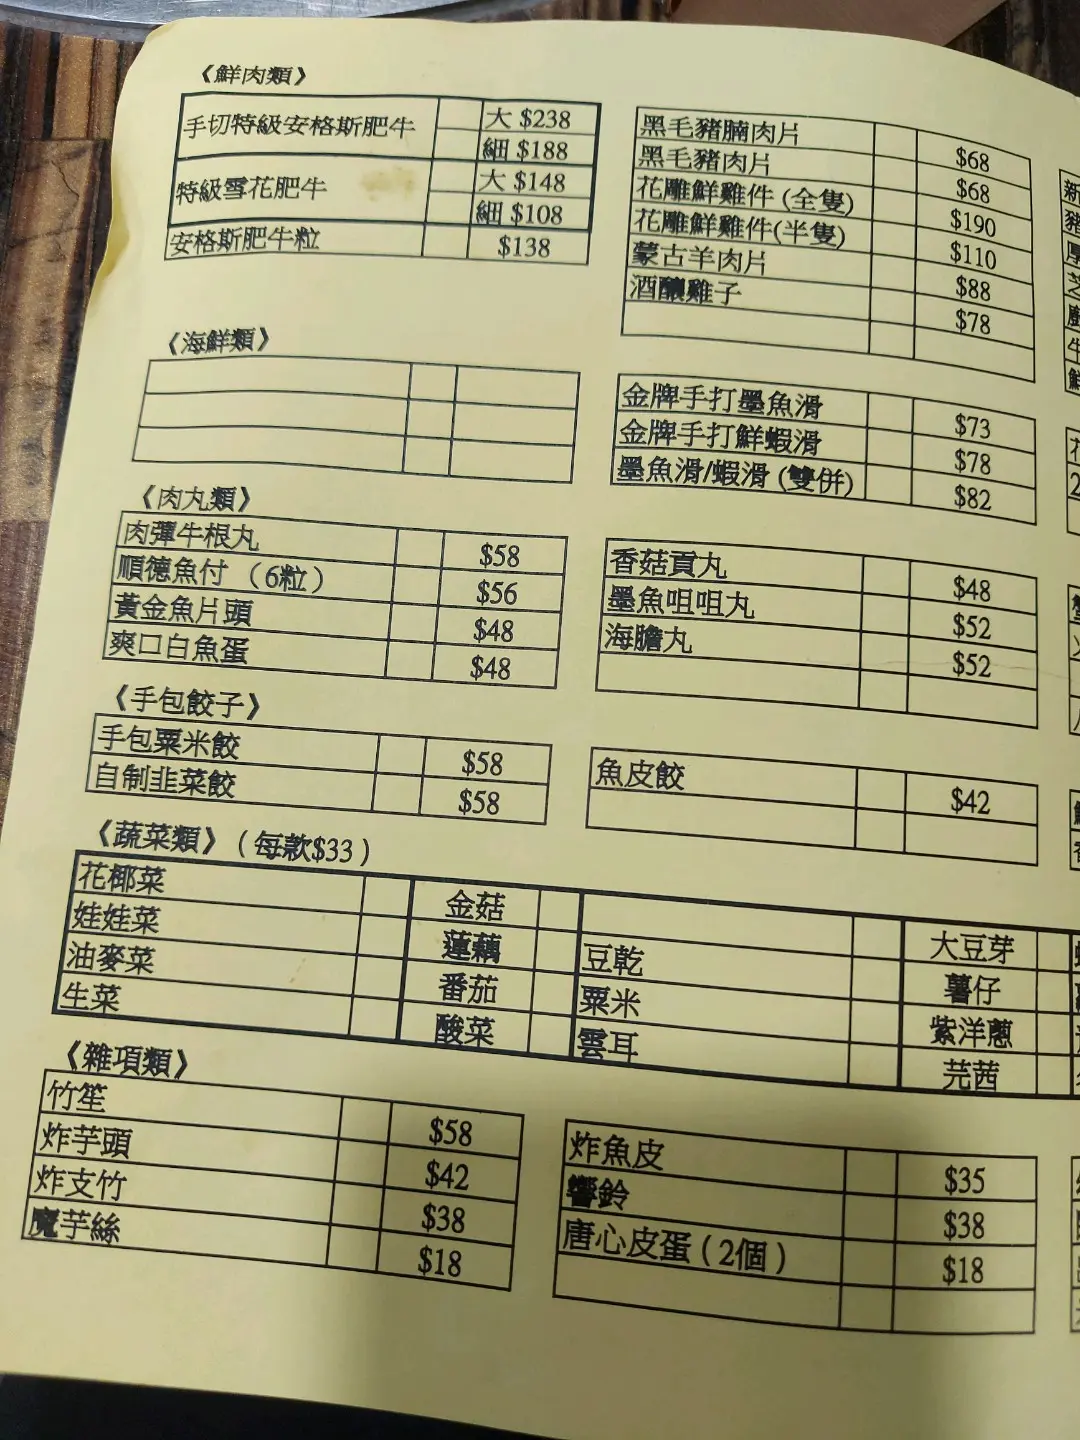 《鮮肉類》
手切特級安格斯肥牛 大 $238
細 $188
特級雪花肥牛 大 $148
細 $108
安格斯肥牛粒 $138
黑毛豬腩肉片 $68
黑毛豬肉片 $68
花雕鮮雞件 (全隻) $190
花雕鮮雞件(半隻) $110
蒙古羊肉片 $88
酒釀雞子 $78
《海鮮類》
金牌手打墨魚滑 $73
金牌手打鮮蝦滑 $78
墨魚滑/蝦滑 (雙併) $82
《肉丸類》
肉彈牛根丸 $58
順德魚付 （6粒） $56
黃金魚片頭 $48
爽口白魚蛋 $48
香菇貢丸 $48
墨魚咀咀丸 $52
海膽丸 $52
《手包餃子》
手包粟米餃 $58
自制韭菜餃 $58
魚皮餃 $42
《蔬菜類》（每款$33）
花椰菜 金菇 大豆芽
娃娃菜 蓮藕 豆乾 薯仔
油麥菜 番茄 粟米 紫洋蔥
生菜 酸菜 雲耳 芫茜
《雜項類》
竹笙 $58
炸芋頭 $42
炸支竹 $38
魔芋絲 $18
炸魚皮 $35
響鈴 $38
唐心皮蛋（2個） $18